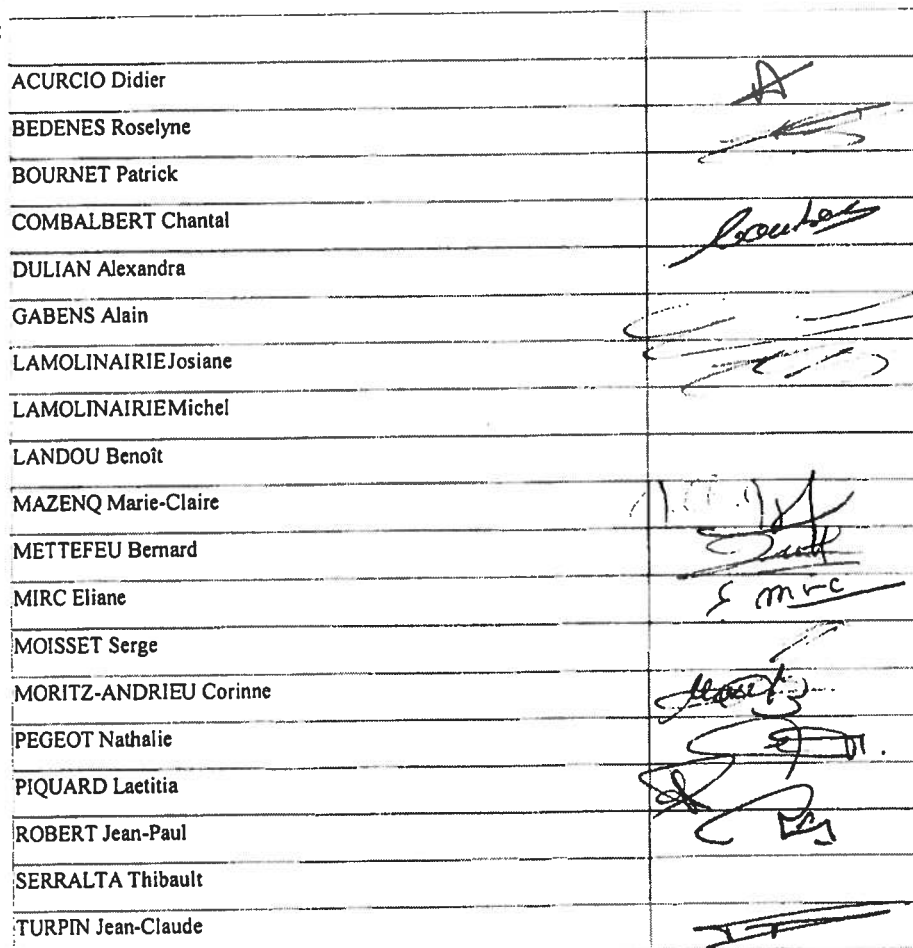 ACURCIO Didier
BEDENES Roselyne
BOURNET Patrick
COMBALBERT Chantal
DULIAN Alexandra
GABENS Alain
LAMOLINAIRIEJosiane
LAMOLINAIRIEMichel
LANDOU Benoît
MAZENQ Marie-Claire
METTEFEU Bernard
MIRC Eliane
MOISSET Serge
MORITZ-ANDRIEU Corinne
PEGEOT Nathalie
PIQUARD Laetitia
ROBERT Jean-Paul
SERRALTA Thibault
TURPIN Jean-Claude